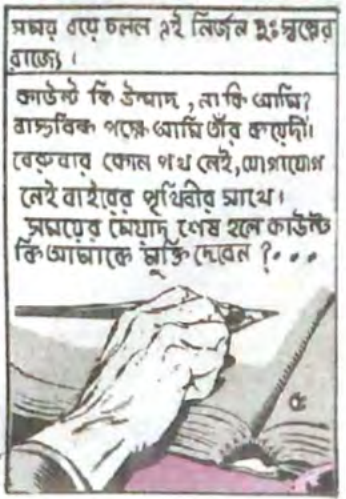 সময় বয়ে চলল এই নির্জন দুঃস্বপ্নের
রাজ্যে।
কাউন্ট কি উন্মাদ, না কি আমি?
বাস্তবিক পক্ষে আমি তাঁর কয়েদী।
বেরুবার কোন পথ নেই, যোগাযোগ
নেই বাইরের পৃথিবীর সাথে।
সময়ের মেয়াদ শেষ হলে কাউন্ট
কি আমাকে মুক্তি দেবেন ?...